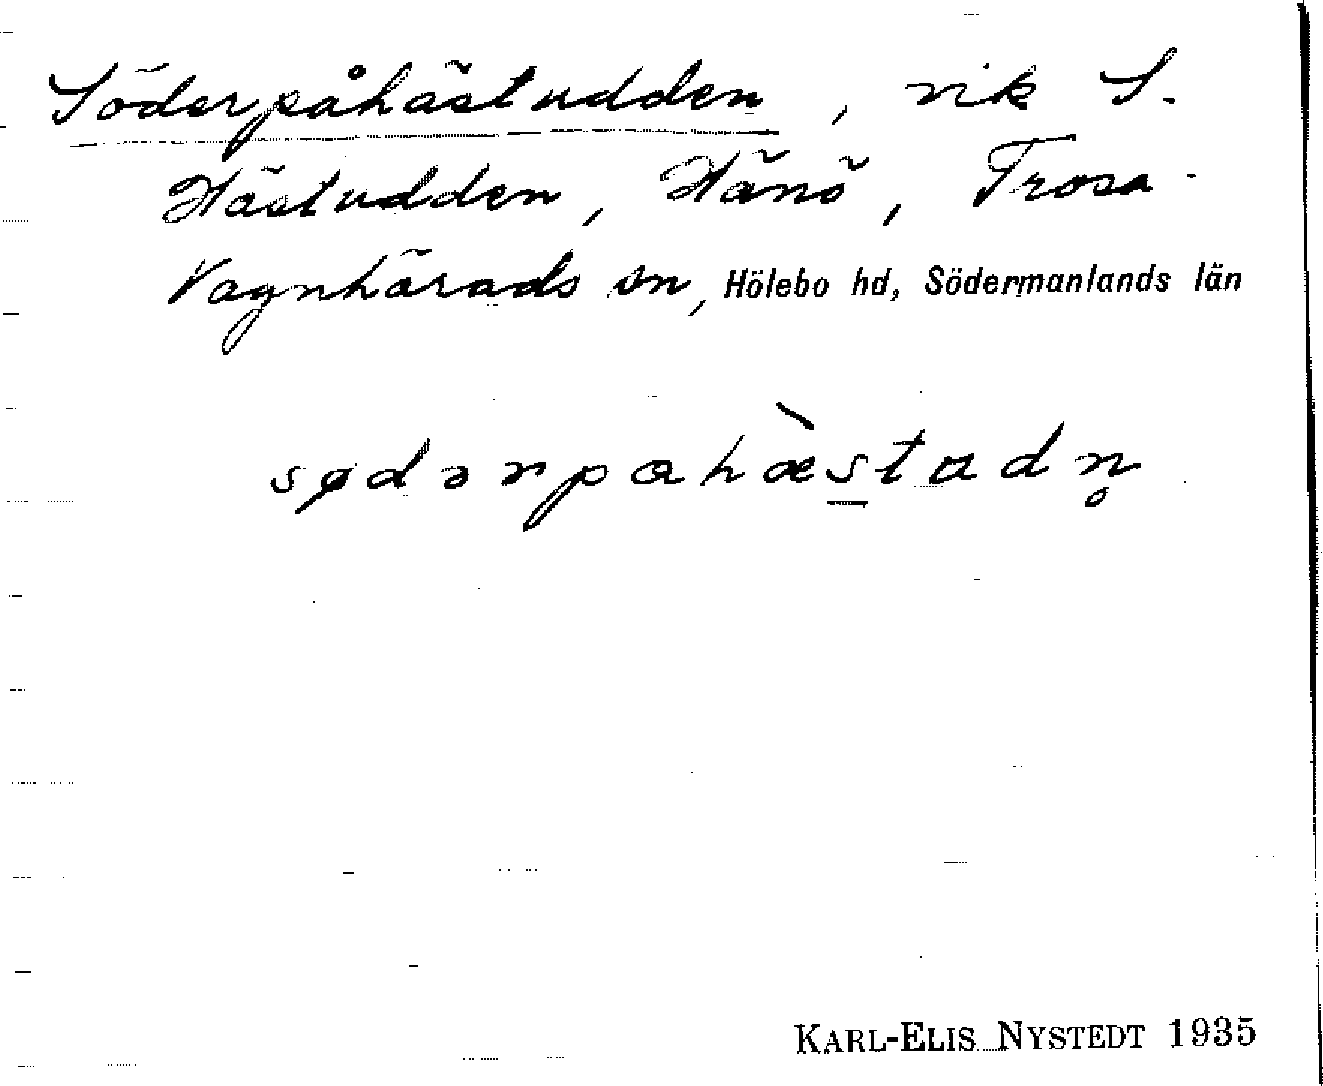 Söderpåhästudden, vik S.
Hästudden, Hånö, Trosa-
Vagnhärads sn, Hölebo hd, Södermanlands län
sødərpahæ̀stadn̥
KARL-ELIS NYSTEDT 1935